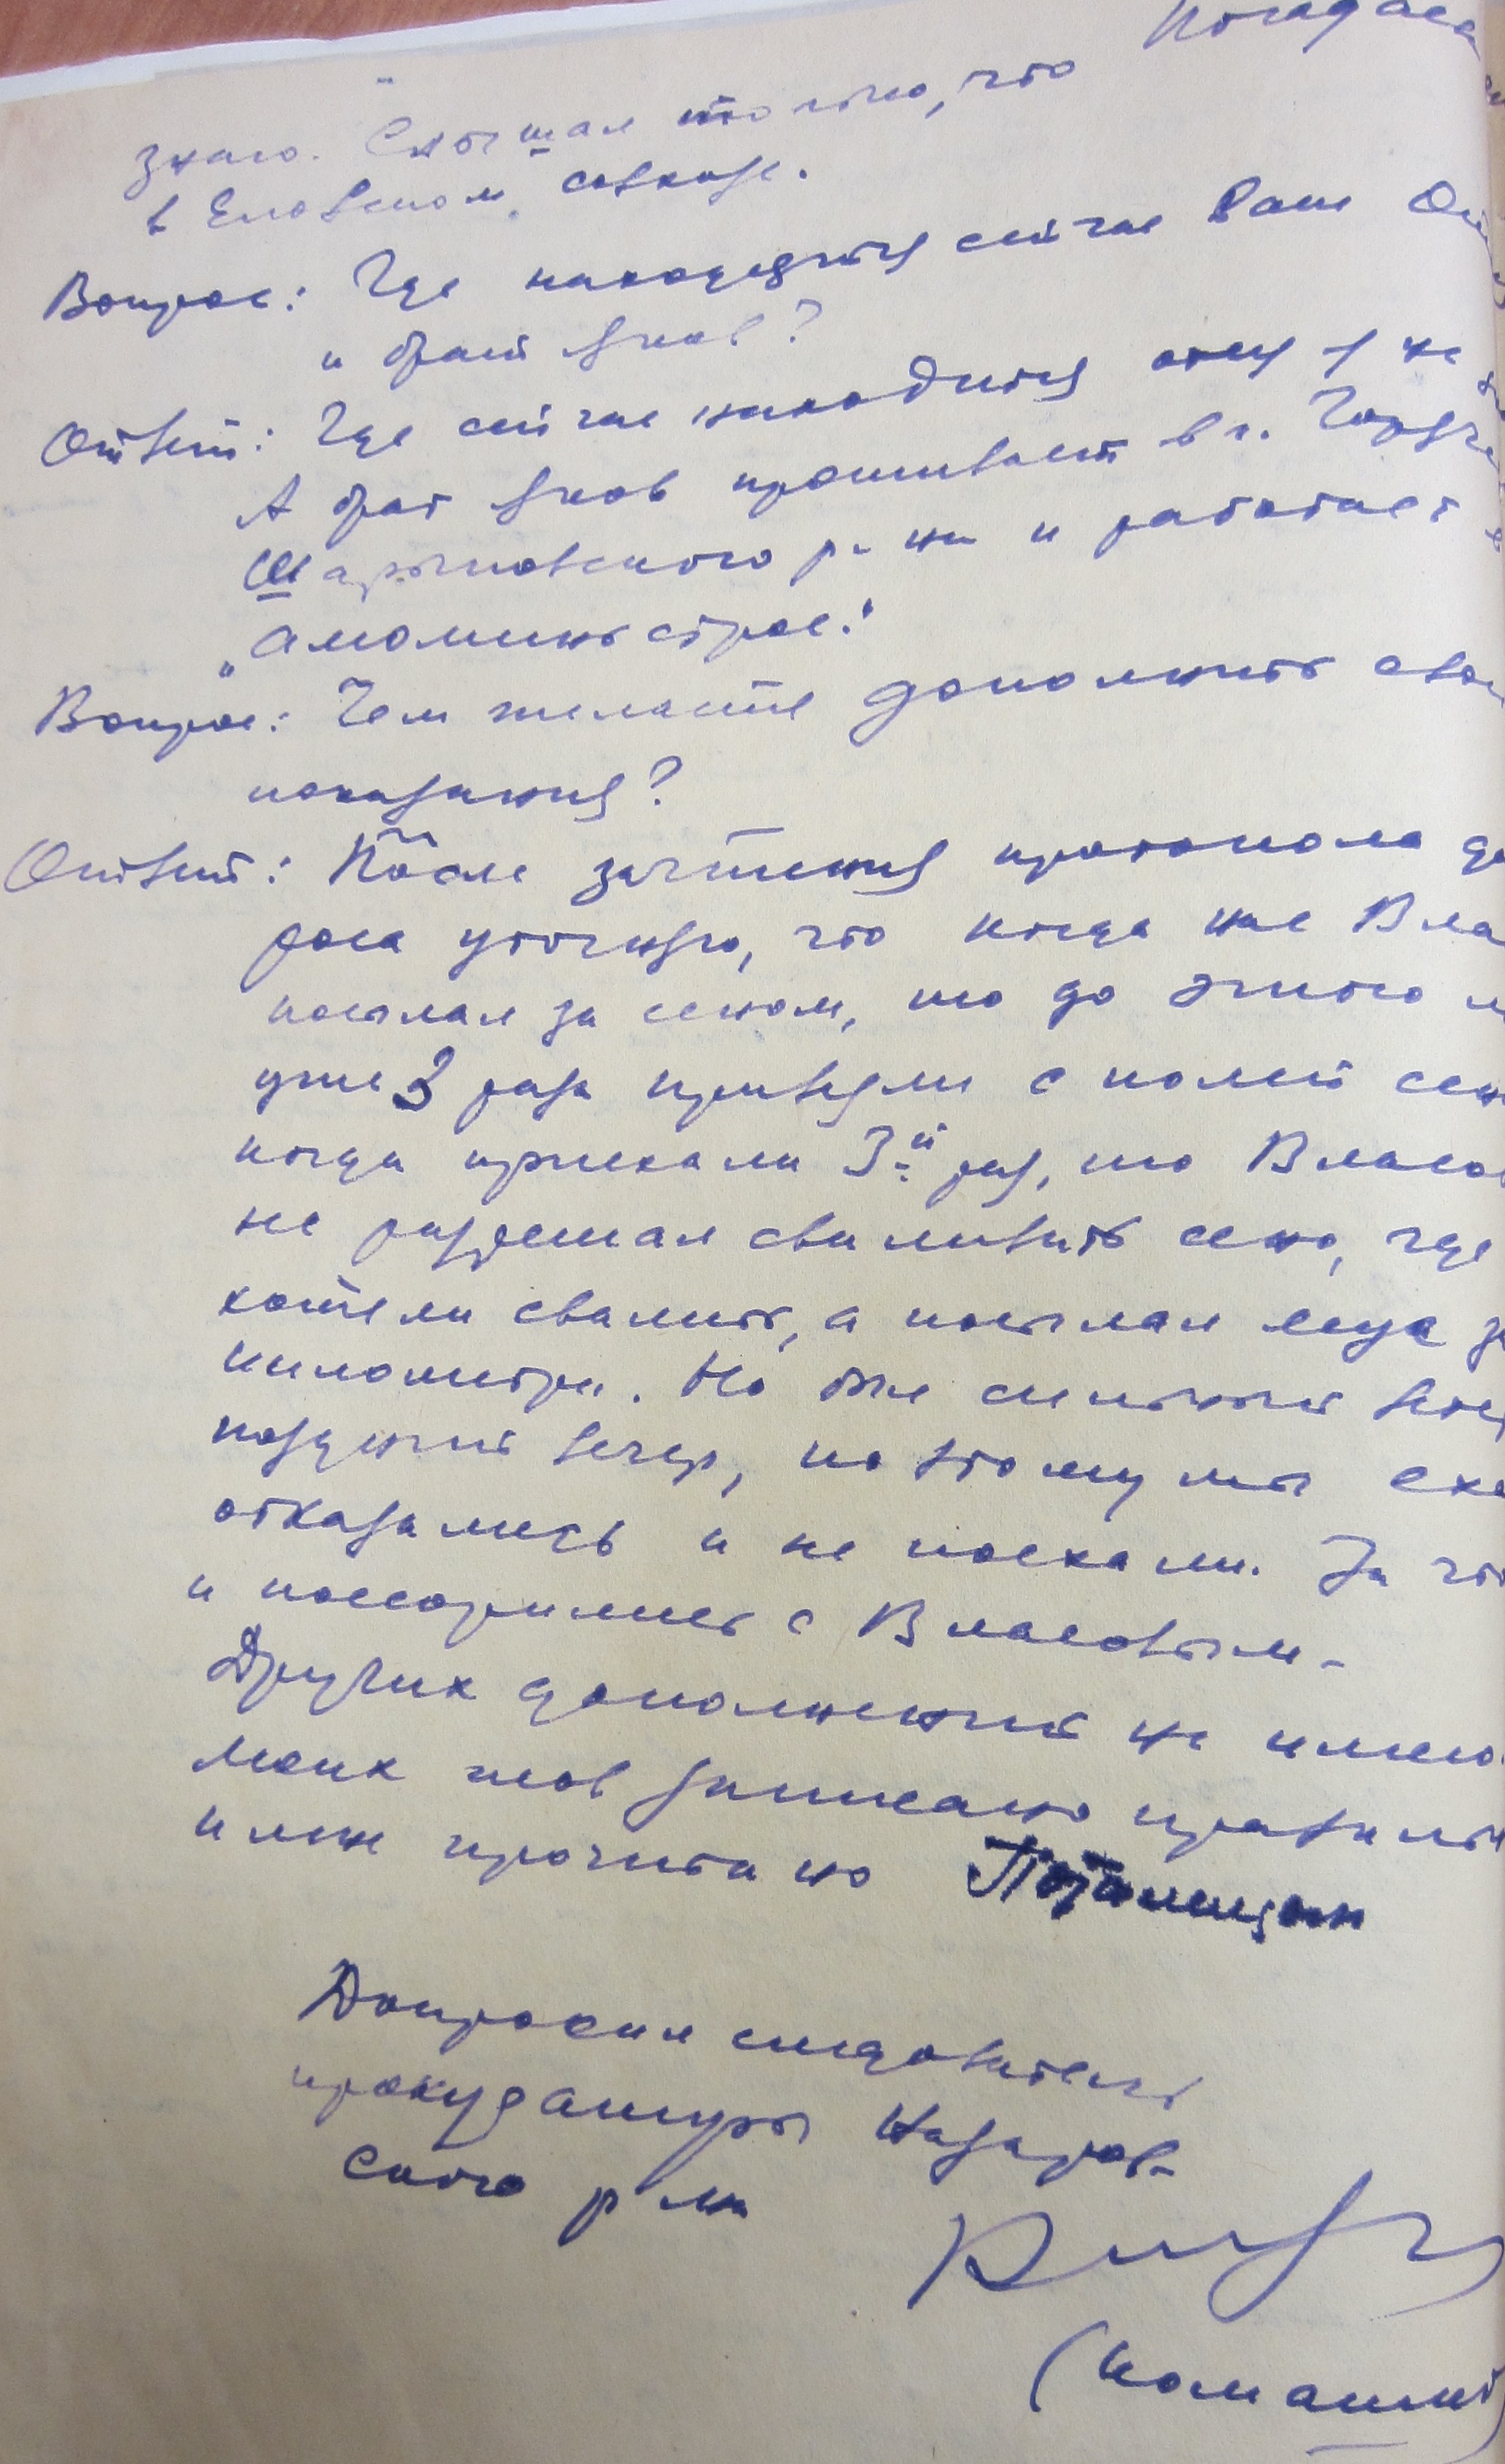 знаю. Слышал только, что Погадаев
в Еловском совхозе.
Вопрос: Где находятся сейчас Ваш От
и брат Яков?
Ответ: Где сейчас находится отец я не
А брат Яков проживает в г.
Шарыповского р-на и работает
„Алюминьстрое."
Вопрос: Чем желаете дополнить сво
показания?
Ответ: После зачтения протокола до
роса уточняю, что когда нас Вла
посылал за сеном, то до этого м
уже 3 раза привезли с полей сен
когда приехали 3-й раз, то Власов
не разрешал сваливать сено, где
хотели свалить, а посылал еще з
километра. Но был сильный вет
поздний вечер, поэтому мы еха
отказались и не поехали. За что
и поссорились с Власовым.
Других дополнений не имею.
моих слов записано правильн
и мне прочитано
Допросил следователь
прокуратуры Назаров-
ского р-на